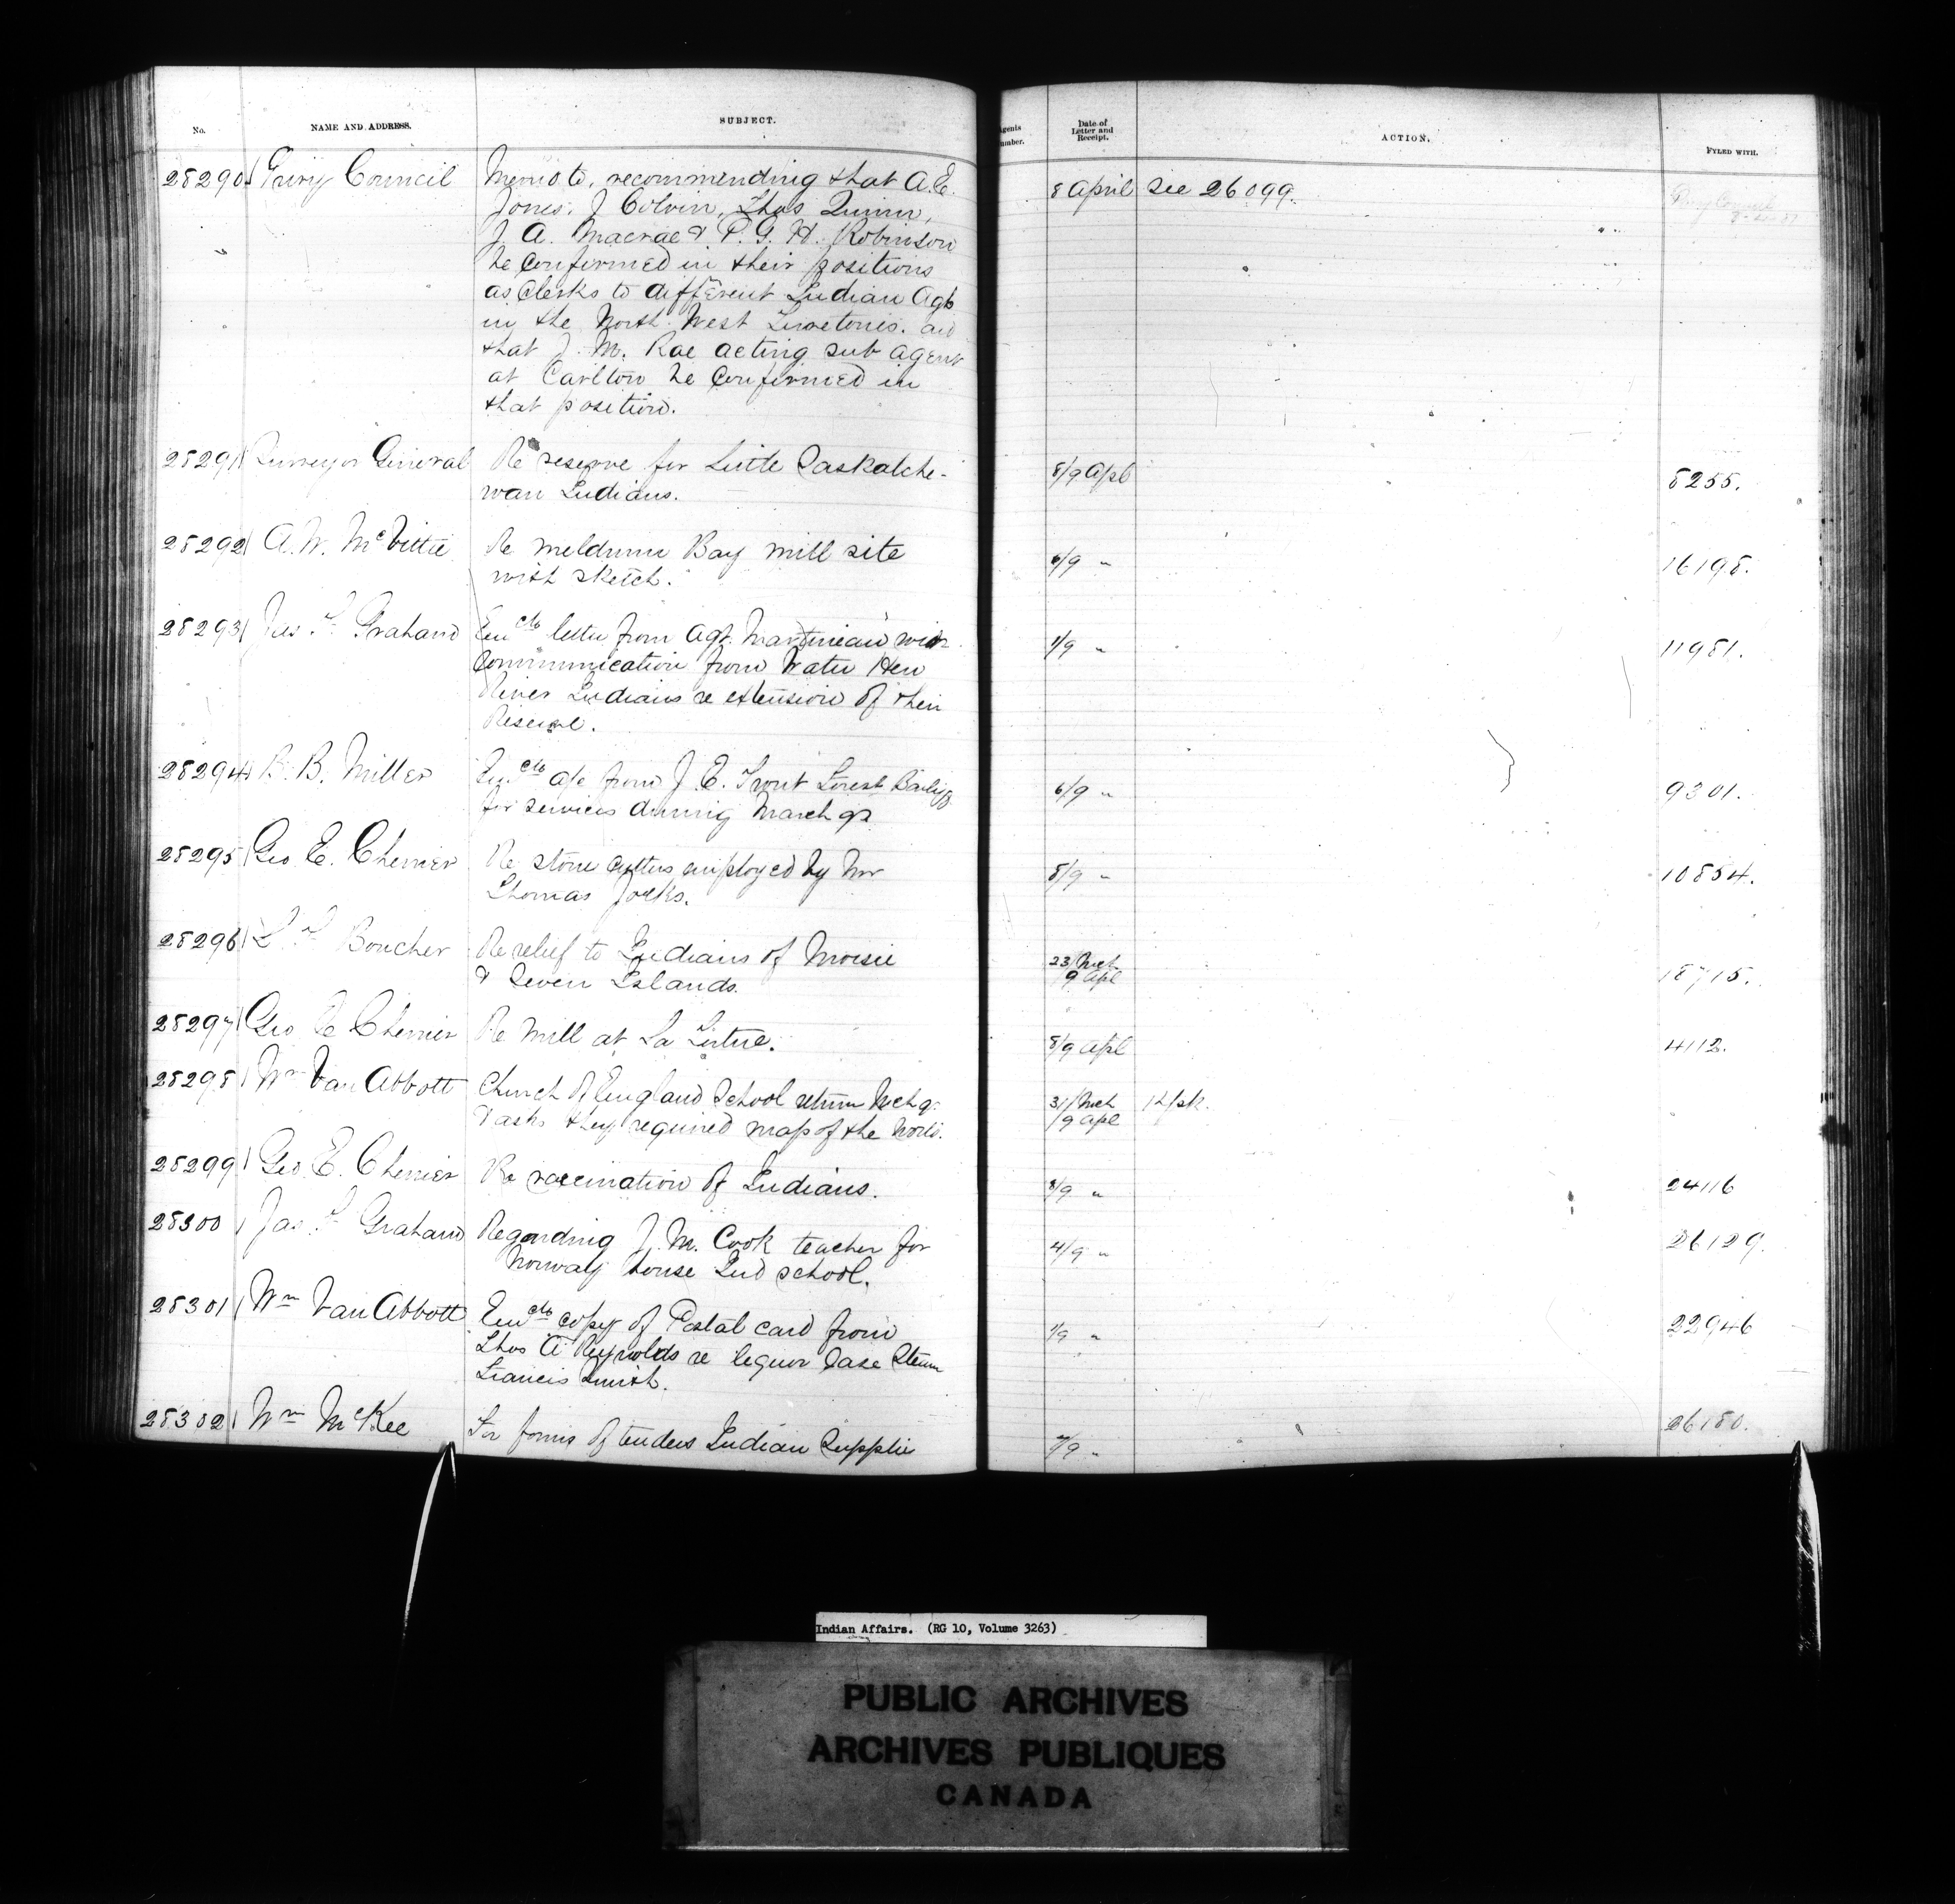 No. NAME AND ADDRESS. SUBJECT. Agents Number. Date of Letter and Receipt. ACTION. FYLED WITH.
28290 Privy Council Memo to, recommending that A.E. 8 April see 26099. Privy Council
Jones, J Colvin, Thos Quinn,
J. A. Macrae & P. G. H. Robinson
be confirmed in their positions
as Clerks to different Indian Agts
in the North West Territories. and
that J. M. Rae acting sub agent
at Carlton be confirmed in
that position.
28291 Surveyor General Re reserve for Little Saskatche- 8/9 Apl 8255.
wan Indians.
28292 A. W. McVittie Re Meldrum Bay mill site 6/9 " 16198.
with sketch.
28293 Jas. F. Graham Encl letter from Agt. Martineau with 1/9 " 11981.
Communication from Water Hen
River Indians re extension of their
Reserve.
28294 B. B. Miller a/c from J. E. Trout Forest Bailiff 6/9 " 9301.
for services during March qr
28295 Geo E. Cherrier Re stone cutters employed by Mr 8/9 " 10854.
Thomas Jocks.
28296 Boucher Re relief to Indians of Moisie 23/Mch 18715.
& Seven Islands. 9 Apl
28297 Geo E Cherrier Re Mill at La Tortue. 8/9 Apl 4112.
28298 Wm Van Abbott Church of England School return Mch qr 31/Mch
& asks they required map of the World. 9 Apl
28299 Geo. E. Cherrier Re vaccination of Indians. 8/9 " 24116
28300 Jas. F. Graham Regarding J. M. Cook teacher for 4/9 " 26129.
Norway House Ind school.
28301 Wm Van Abbott Encl copy of Postal card from 1/9 " 22946
Thos A Reynolds re liquor case
Francis Smith.
28302 Wm McKee For forms of tenders Indian Supplie 7/9 " 26180.
Indian Affairs. (RG 10, Volume 3263)
PUBLIC ARCHIVES
ARCHIVES PUBLIQUES
CANADA